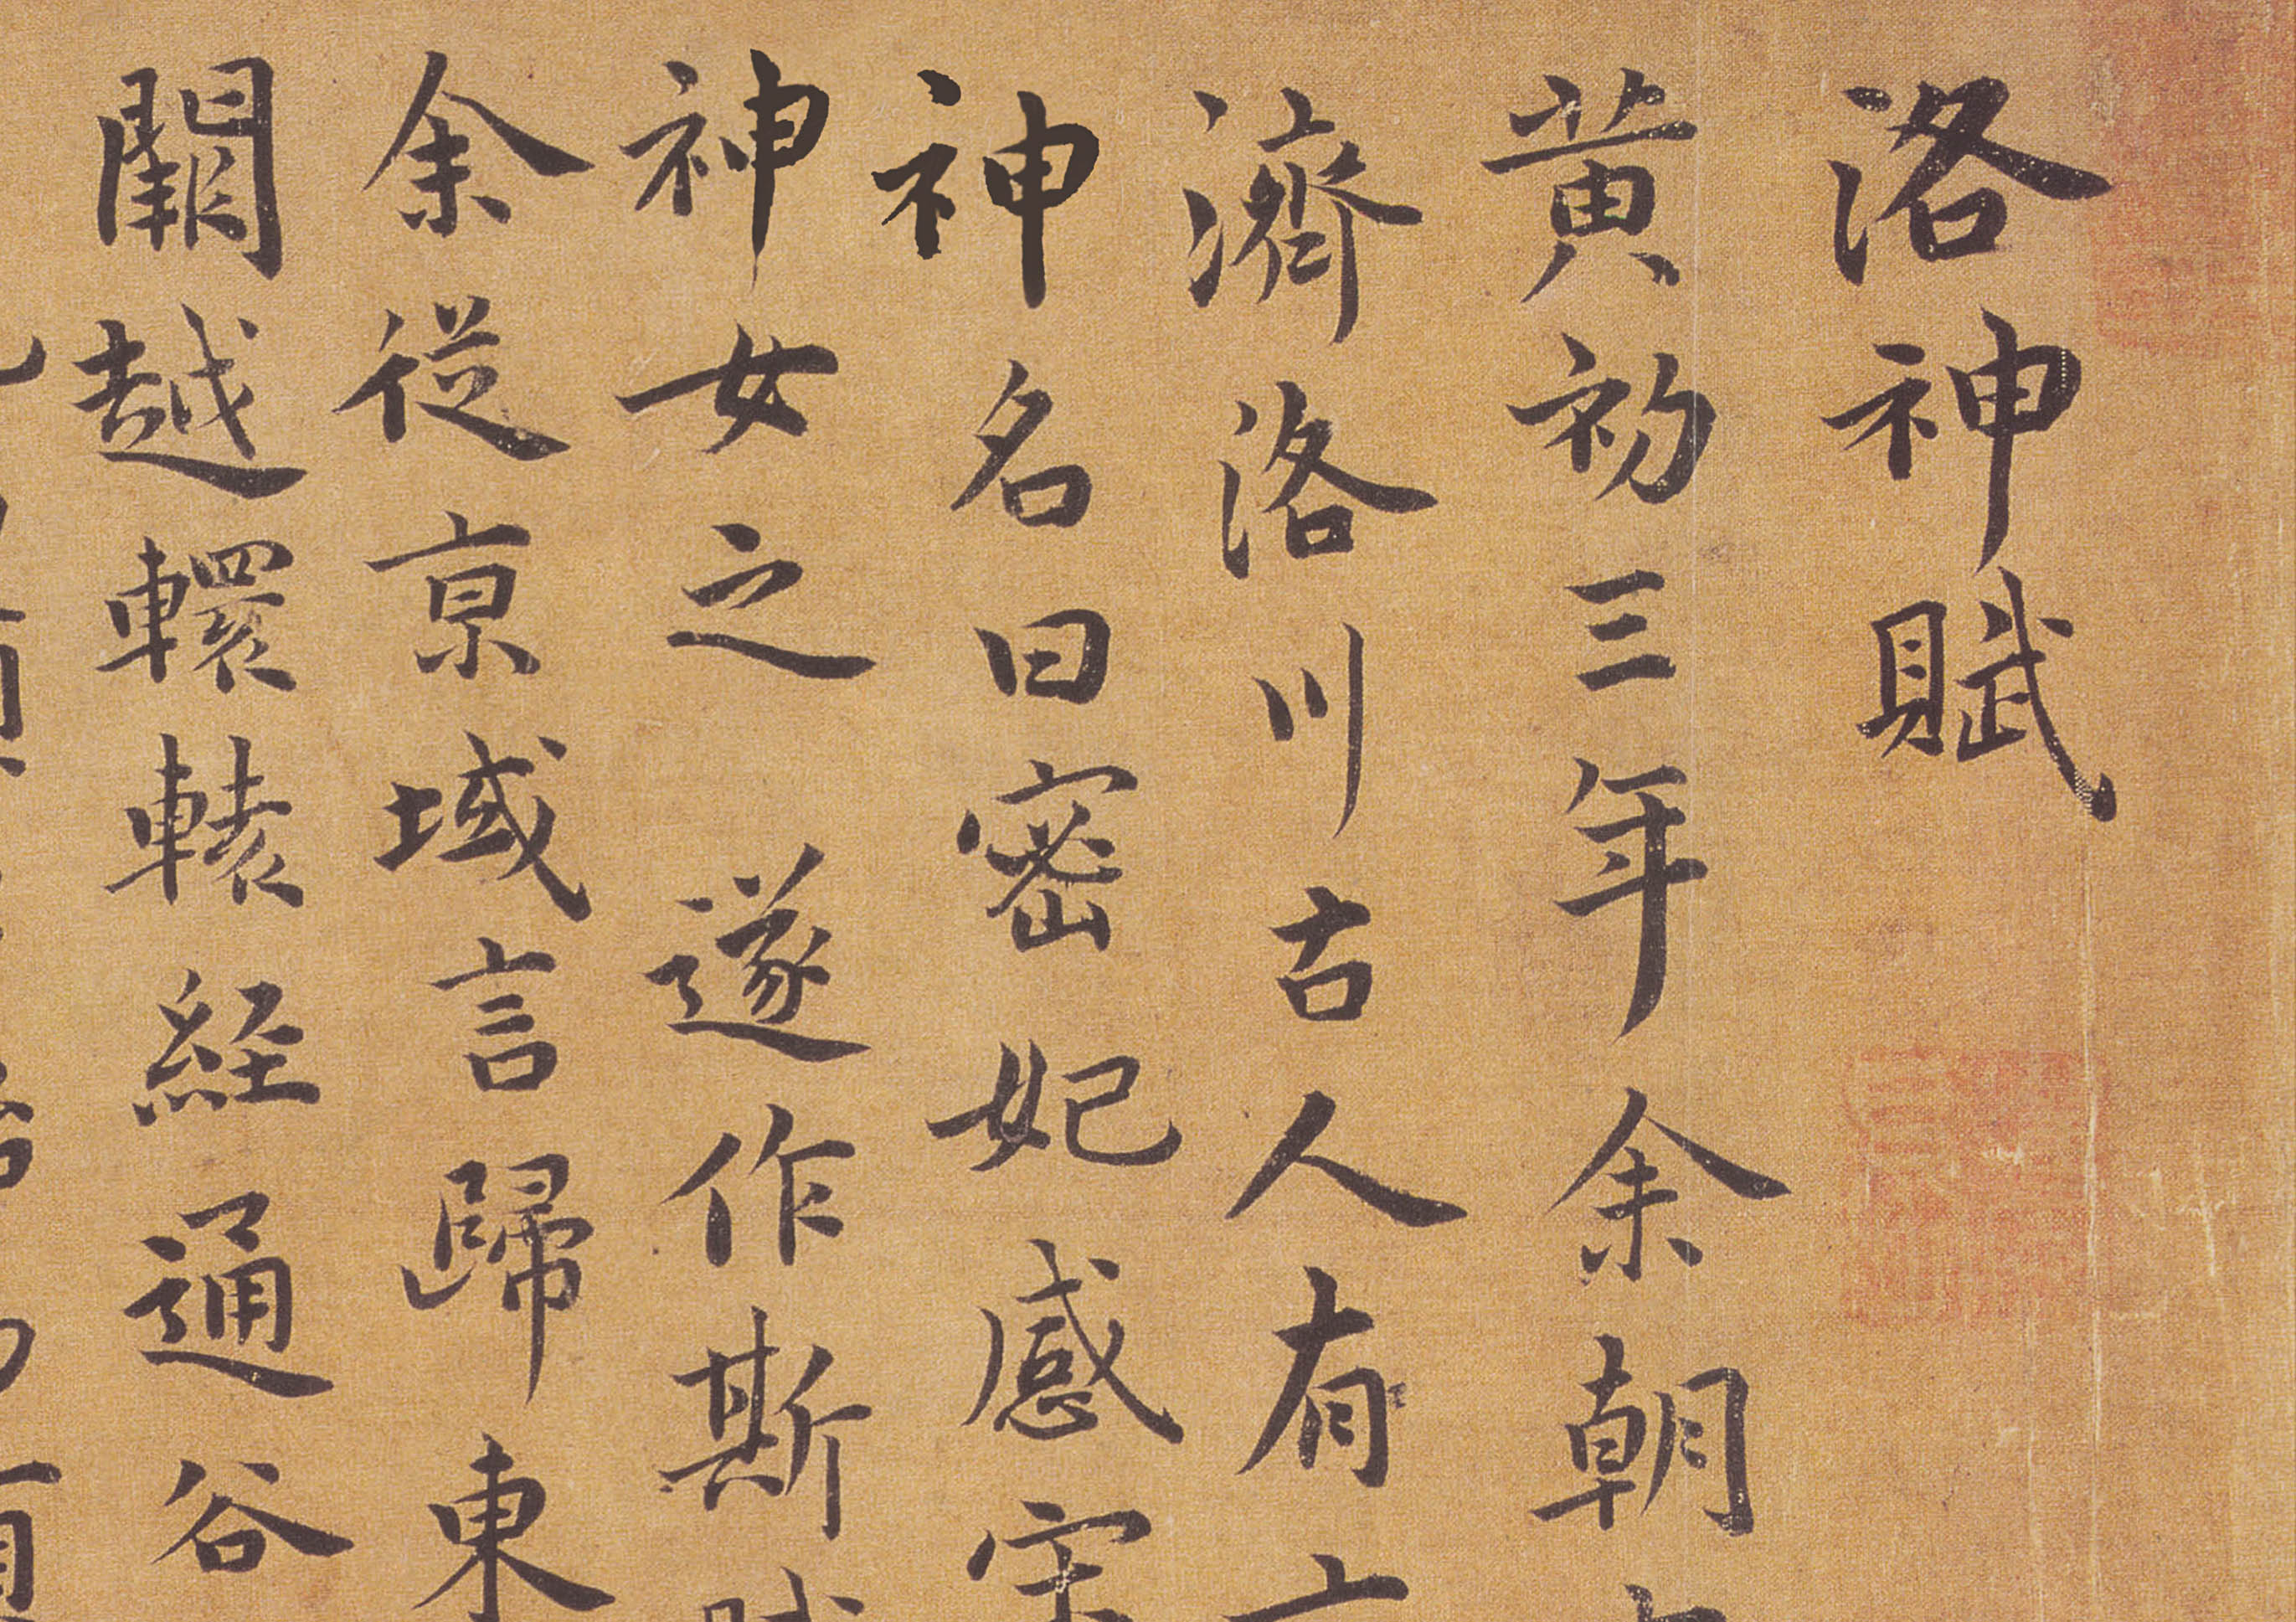 洛神賦
黄初三年余朝
濟洛川古人有
神名曰密妃感宋
神女之遂作斯
余從京域言歸東
闕越轘轅經通谷